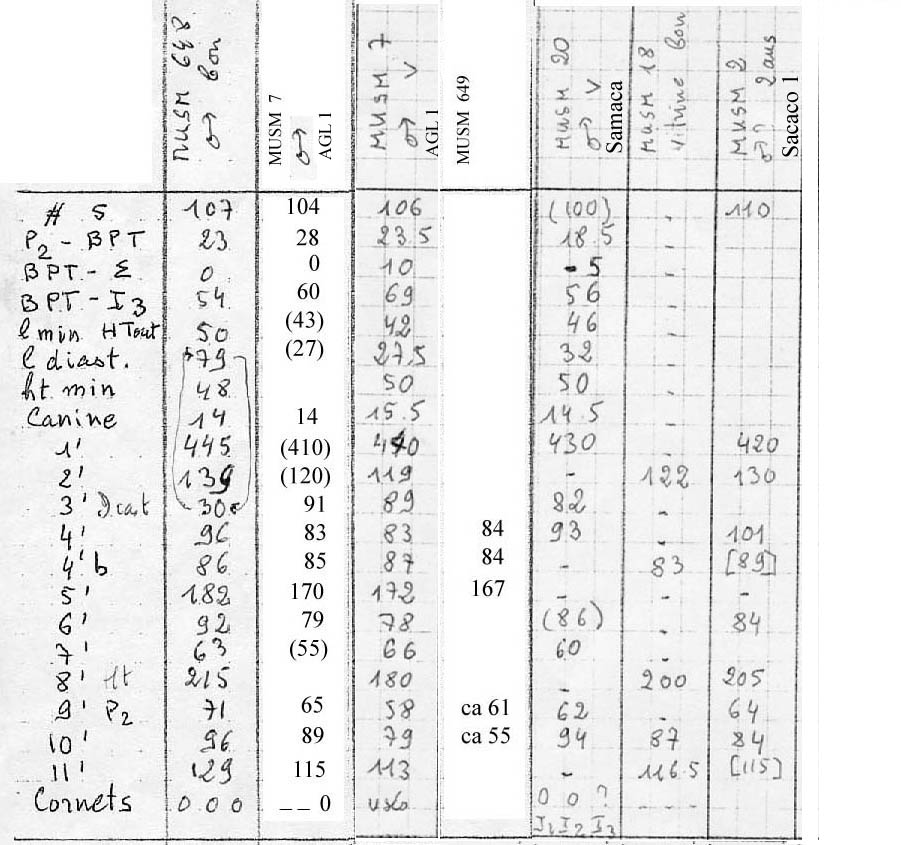 MUSM 648 ♂ bon | MUSM 7 ♂ AGL 1 | MUSM 7 ♂ V AGL 1 | MUSM 649 | MUSM 20 ♂ V Samaca | MUSM 18 vitrine bon | MUSM 2 ♂? 2 ans Sacaco 1
# S 107 104 106 (100) - 110
P2 - BPT 23 28 23.5 18.5 -
BPT - Σ 0 0 10 -5 -
BPT - I3 54 60 69 56 -
l min HT 50 (43) 42 46 -
l diast. 79 (27) 27.5 32 -
ht min 48 50 50
Canine 14 14 15.5 14.5
1' 445 (410) 430 420
2' 139 (120) 119 - 122 130
3' 30 91 89 82 -
4' 96 83 83 84 93 - 101
4' b 86 85 87 84 - 83 [89]
5' 182 170 172 167 - - -
6' 92 79 78 (86) - 84
7' 63 (55) 66 60 -
8' ht 215 180 - 200 205
9' P2 71 65 58 ca 61 62 - 64
10' 96 89 79 ca 55 94 87 84
11' 129 115 113 - 116.5 [115]
Cornets 0 0 0 _ _ 0 0 0 ? - - -
I1 I2 I3